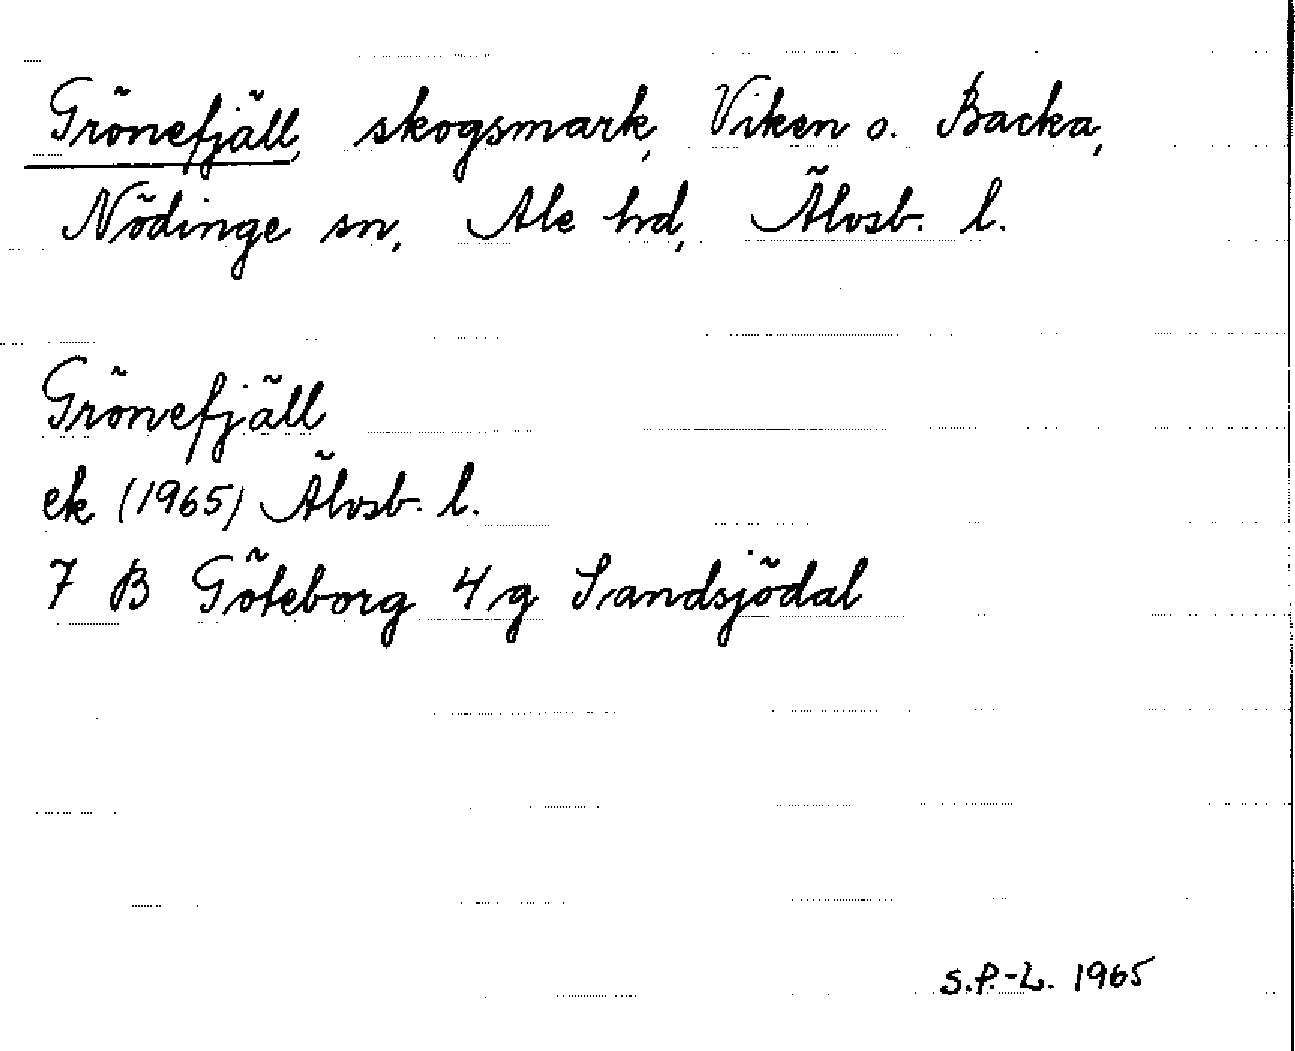 Grönefjäll, skogsmark, Viken o. Backa,
Nödinge sn, Ale hd, Älvsb. l.
Grönefjäll
ek (1965) Älvsb. l.
7 B Göteborg 4 g Sandsjödal
S.P.-L. 1965